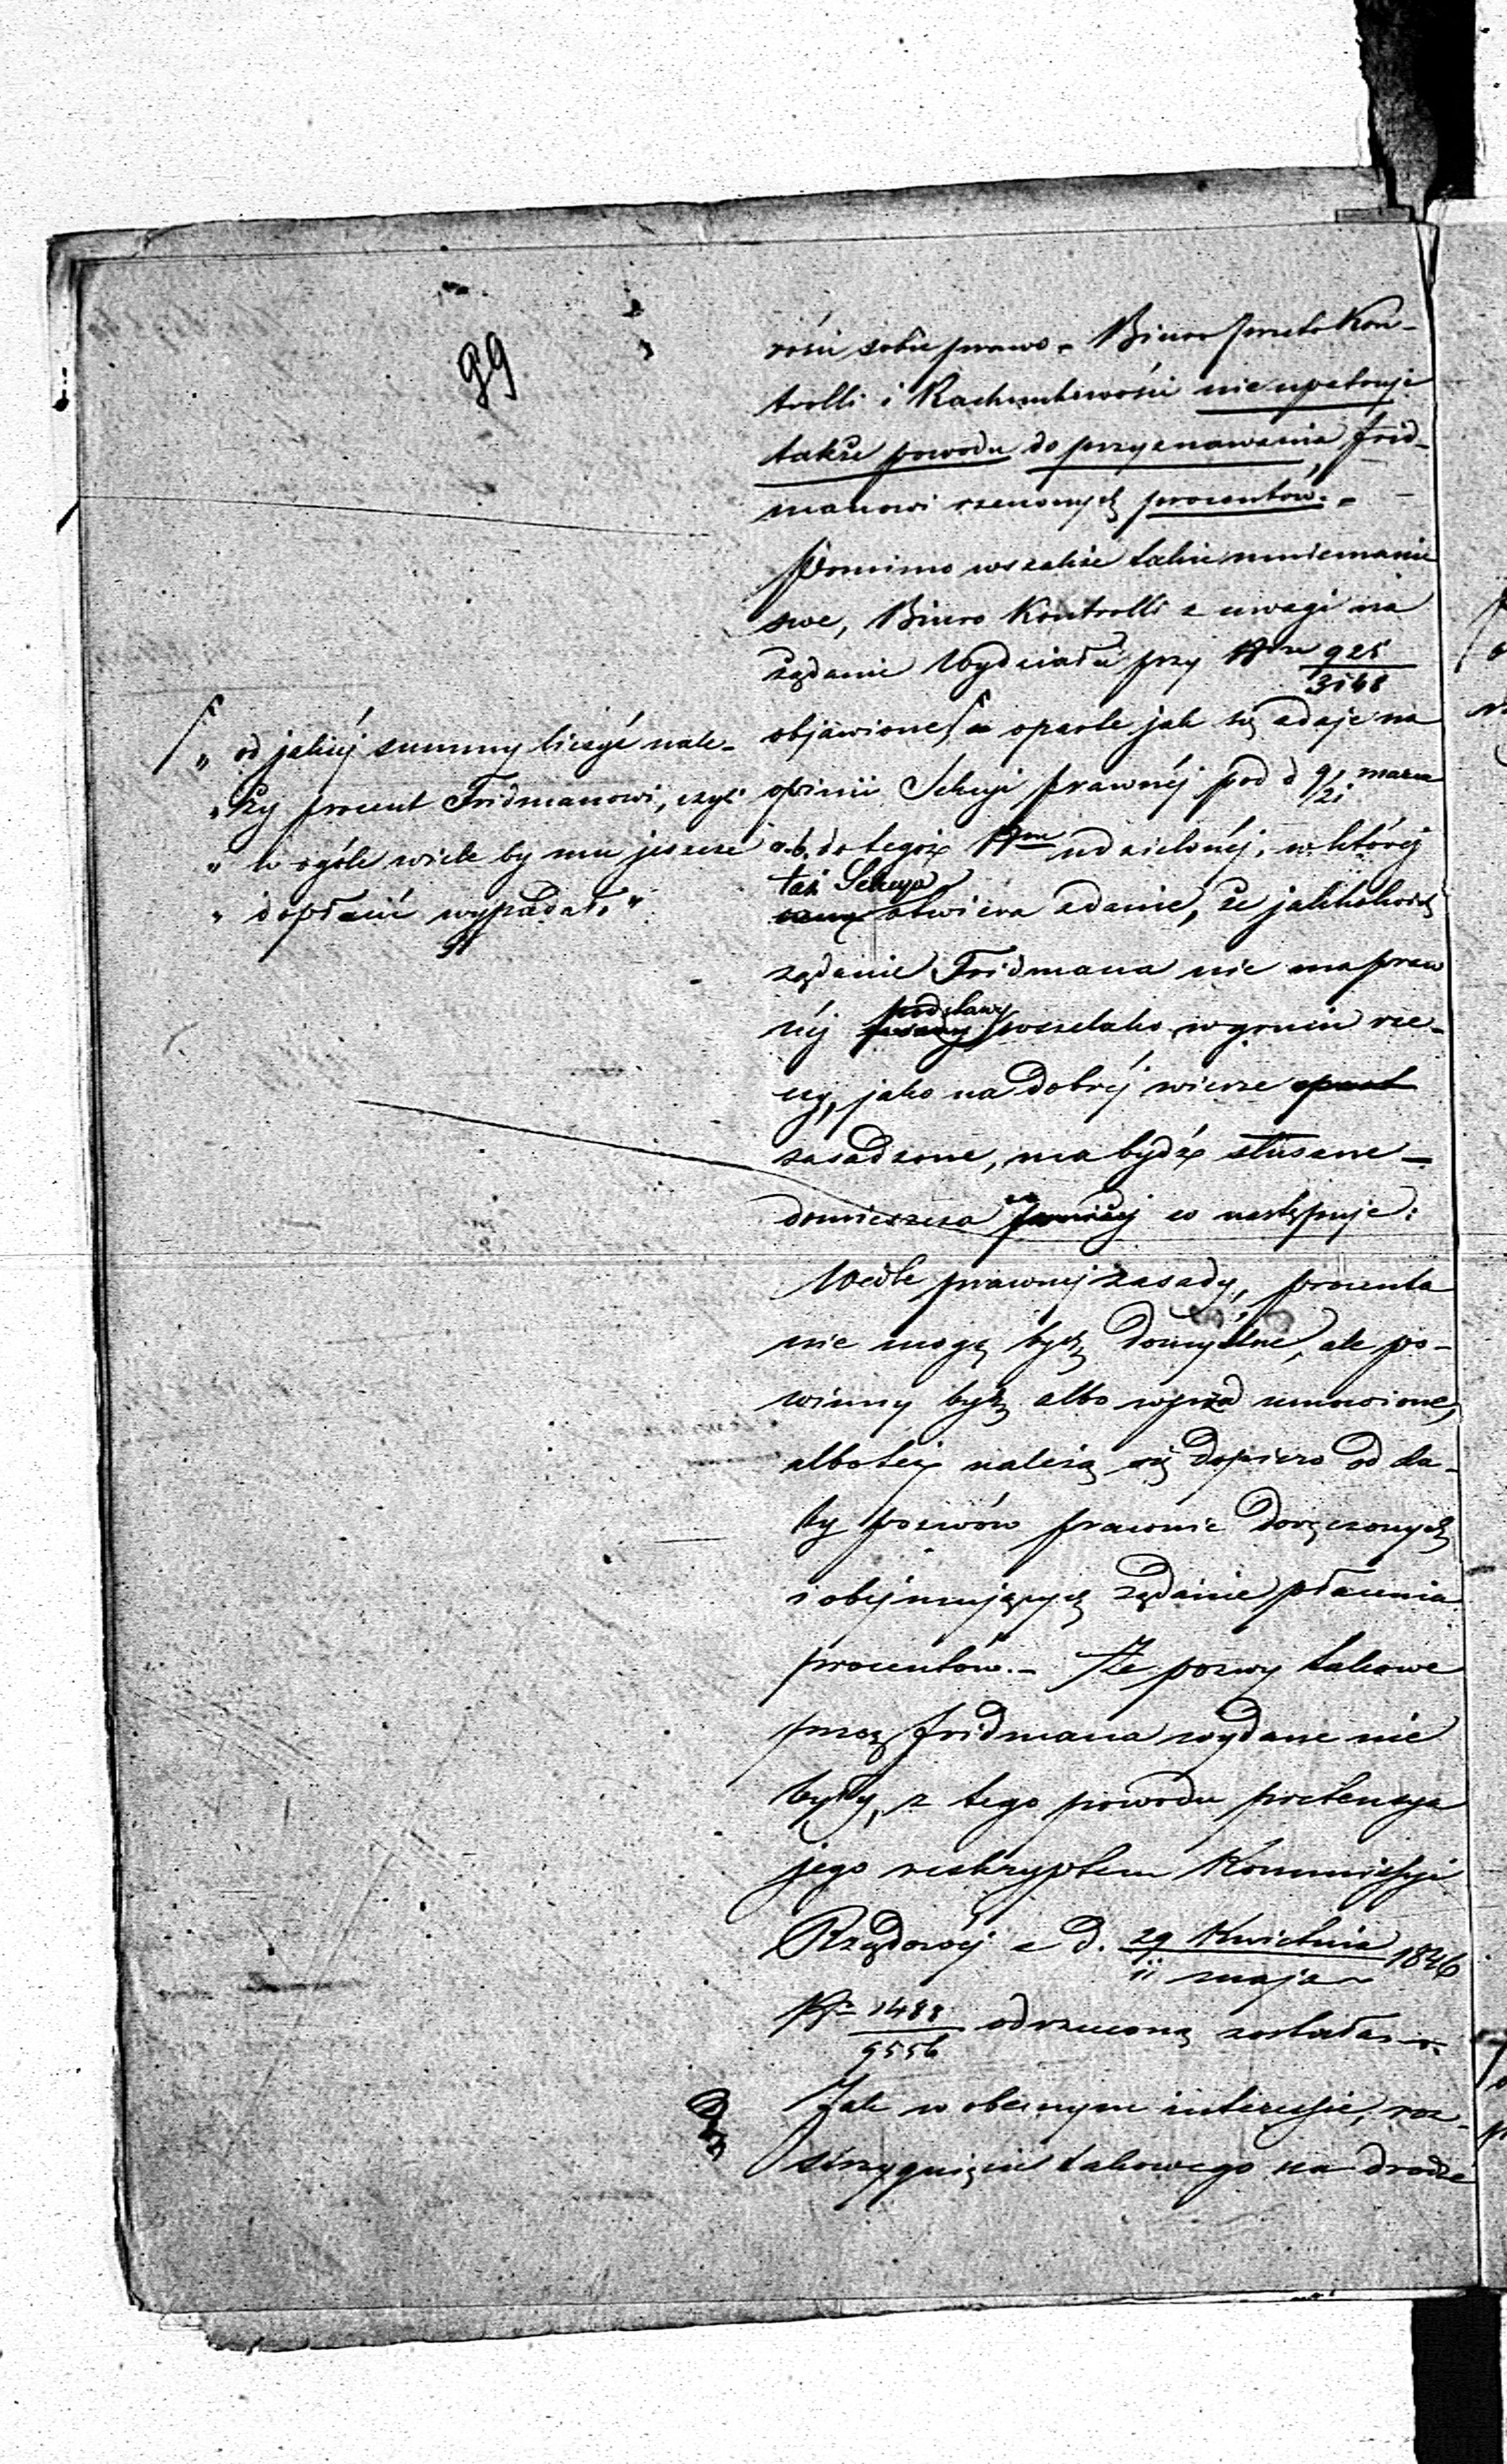 99
rości sobie prawo. – Biuro przeto Kon-
trolli i Rachunkowości nie upatruje
także powodu do przyznawania Frid-
manowi rzeczonych procentów. –
Pomimo wszakże takie mniemanie
swe, Biuro Kontrolli z uwagi na
żądanie Wydziału przy Nrze 925/3148
objawione, a oparte jak się zdaje na
opinii Sekcyi prawnéj pod d 9/21 marca
r.b. do tegoż Nru udzielonéj, w któréj
taż Sekcya
otwiera zdanie, że jakkolwiek
żądanie Fridmana nie ma praw
néj podstawy wszelako w gruncie rze-
czy, jako na dobréj wierze
zasadzone, ma bydź słuszne –
domieszcza co następuje:
Wedle prawnej zasady, procenta
nie mogą bydź domyślne, ale po-
winny bydź albo wprzód umówione,
albo też należą się dopiero od da-
ty pozwów prawnie doręczonych
i obejmujących żądanie płacenia
procentów. – Że pozwy takowe
przez Fridmana wydane nie
były, z tego powodu pretensya
jego reskryptem Kommissyi
Rządowéj z d. 29 Kwietnia/11 maja 1846
N 1488/9556 odrzuconą została. –
Jak w obecnym interessie, roz-
strzygnięcie takowego na drodze
„ od jakiéj summy liczyć nale-
„ ży procent Fridmanowi, czyli
„ w ogóle wiele by mu jeszcze
„ dopłacić wypadało”